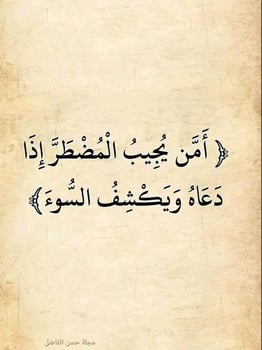 ﴿ أَمَّن يُجِيبُ الْمُضْطَرَّ إِذَا
دَعَاهُ وَيَكْشِفُ السُّوءَ﴾
مجلة حسن الفاضل